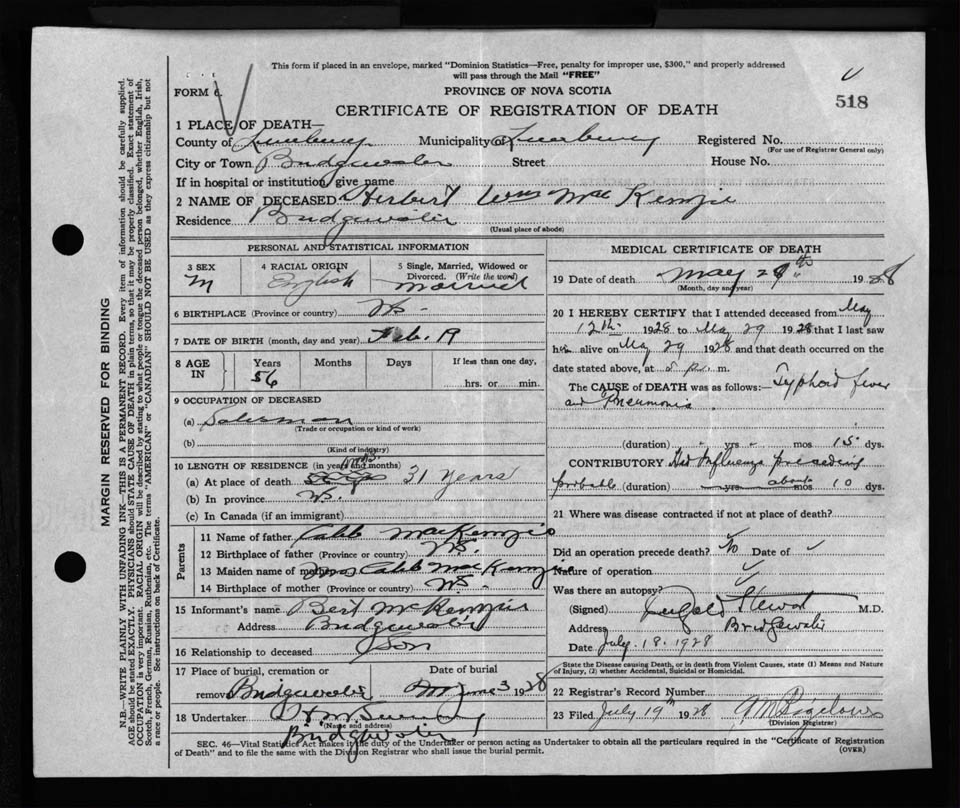 This form if placed in an envelope, marked "Dominion Statistics—Free, penalty for improper use, $300," and properly addressed
will pass through the Mail "FREE"
FORM 6.
PROVINCE OF NOVA SCOTIA
518
CERTIFICATE OF REGISTRATION OF DEATH
1 PLACE OF DEATH—
County of Lunenburg Municipality of Lunenburg Registered No.
(For use of Registrar General only)
City or Town Bridgewater Street House No.
If in hospital or institution, give name
2 NAME OF DECEASED Herbert Wm MacKenzie
Residence Bridgewater
(Usual place of abode)
PERSONAL AND STATISTICAL INFORMATION
3 SEX
M
4 RACIAL ORIGIN
English
5 Single, Married, Widowed or
Divorced. (Write the word)
Married
6 BIRTHPLACE (Province or country) N.S.
7 DATE OF BIRTH (month, day and year) Feb. 19
8 AGE
IN
Years
56
Months
Days
If less than one day,
hrs. or min.
9 OCCUPATION OF DECEASED
(a)
(Trade or occupation or kind of work)
(b)
(Kind of industry)
10 LENGTH OF RESIDENCE (in years and months)
(a) At place of death 31 years
(b) In province N.S.
(c) In Canada (if an immigrant)
Parents
11 Name of father Caleb MacKenzie
12 Birthplace of father (Province or country) N.S.
13 Maiden name of mother Mrs Caleb MacKenzie
14 Birthplace of mother (Province or country) N.S.
15 Informant's name Bert McKenzie
Address Bridgewater
16 Relationship to deceased Son
17 Place of burial, cremation or Date of burial
removal Bridgewater June 3 1928
18 Undertaker
(Name and address)
Bridgewater
MEDICAL CERTIFICATE OF DEATH
19 Date of death May 29th 1928
(Month, day and year)
20 I HEREBY CERTIFY that I attended deceased from May
12th 1928 to May 29 1928 that I last saw
him alive on May 29 1928 and that death occurred on the
date stated above, at m.
The CAUSE of DEATH was as follows:— Typhoid fever
and Pneumonia
(duration) yrs mos 15 dys.
CONTRIBUTORY Had Influenza preceding
probable (duration) yrs about mos 10 dys.
21 Where was disease contracted if not at place of death?
Did an operation precede death? No Date of
Nature of operation
Was there an autopsy?
(Signed) Stewart M.D.
Address Bridgewater
Date July 18. 1928
State the Disease causing Death, or in death from Violent Causes, state (1) Means and Nature
of Injury, (2) whether Accidental, Suicidal or Homicidal.
22 Registrar's Record Number
23 Filed July 19th 1928
(Division Registrar)
SEC. 46—Vital Statistics Act makes it the duty of the Undertaker or person acting as Undertaker to obtain all the particulars required in the "Certificate of Registration
of Death" and to file the same with the Division Registrar who shall issue the burial permit.
(OVER)
MARGIN RESERVED FOR BINDING
N.B.—WRITE PLAINLY WITH UNFADING INK—THIS IS A PERMANENT RECORD. Every item of information should be carefully supplied.
AGE should be stated EXACTLY. PHYSICIANS should STATE CAUSE OF DEATH in plain terms, so that it may be properly classified. Exact statement of
OCCUPATION is very important. RACIAL ORIGIN will be described by stating to what people or tongue the deceased person belonged, whether English, Irish,
Scotch, French, German, Russian, Ruthenian, etc. The terms "AMERICAN" or "CANADIAN" SHOULD NOT BE USED as they express citizenship but not
a race or people. See instructions on back of Certificate.